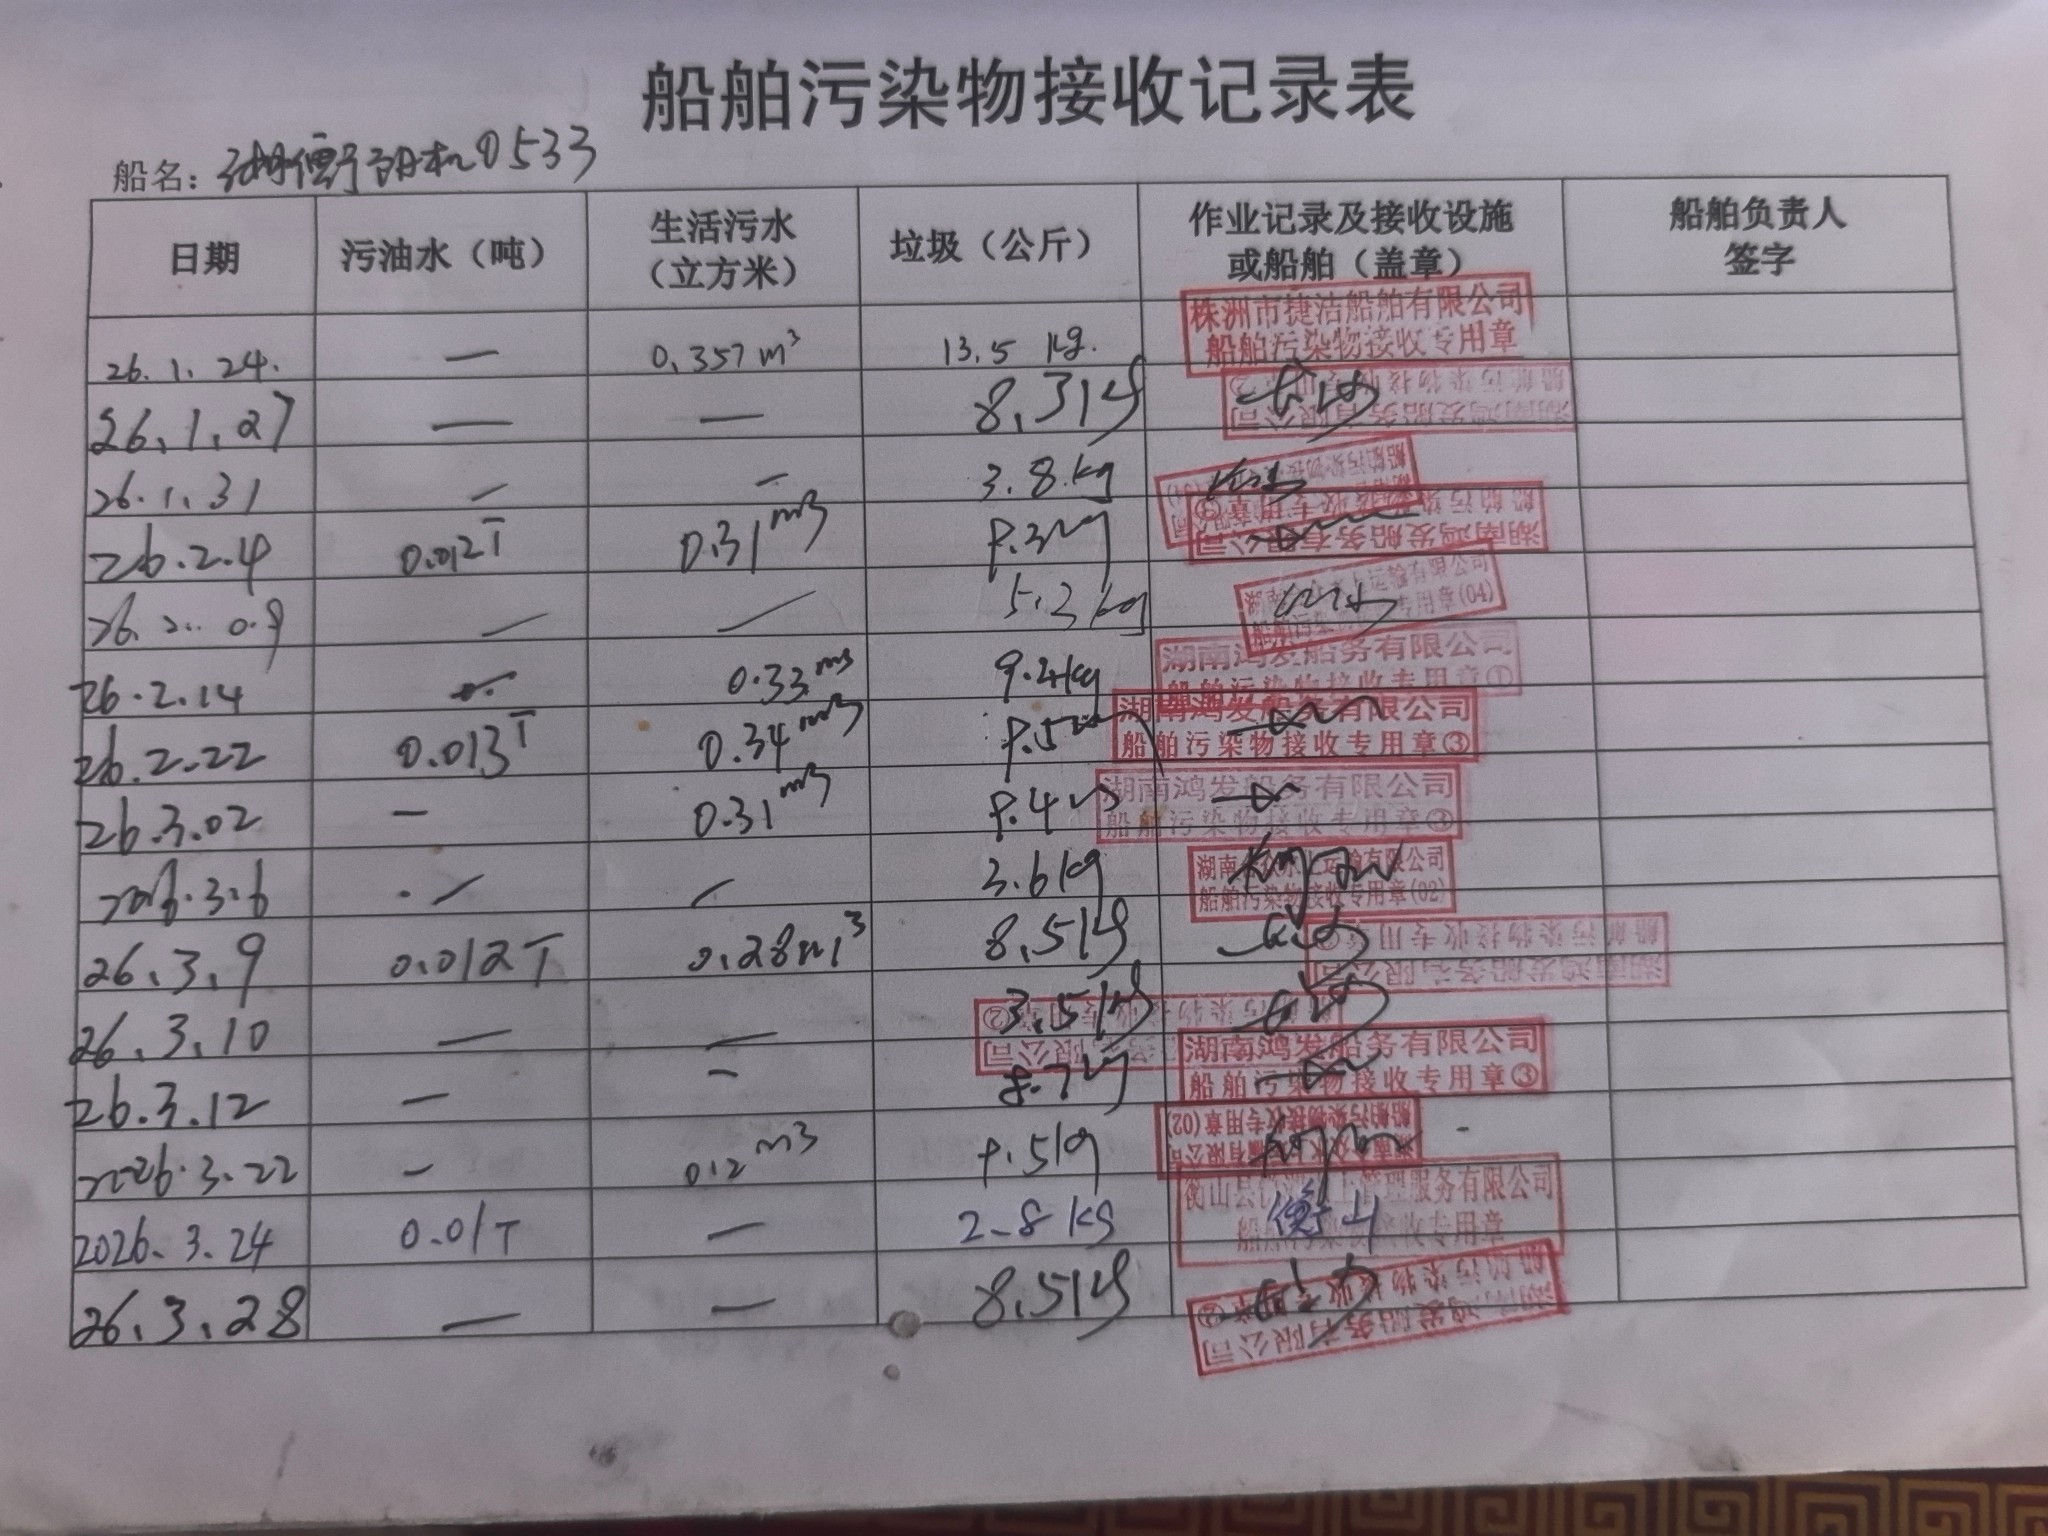 船舶污染物接收记录表
船名：湖衡 机0533
日期 污油水（吨） 生活污水（立方米） 垃圾（公斤） 作业记录及接收设施或船舶（盖章） 船舶负责人签字
26.1.24. — 0.357m³ 13.5 kg. 株洲市捷洁船舶有限公司 船舶污染物接收专用章
26.1.27 — — 8.3kg 湖南鸿发船务有限公司 船舶污染物接收专用章②
26.1.31 — — 3.8kg
26.2.4 0.012T 0.31m3 9.3kg 湖南鸿发船务有限公司 船舶污染物接收专用章③
26.2.09 — — 5.2kg 运输有限公司 船舶污染物接收专用章(04)
26.2.14 — 0.33m3 9.4kg 湖南鸿发船务有限公司 船舶污染物接收专用章①
26.2.22 0.013T 0.34m3 9.5kg 湖南鸿发船务有限公司 船舶污染物接收专用章③
26.3.02 — 0.31m3 9.4kg 湖南鸿发船务有限公司 船舶污染物接收专用章③
2026.3.6 — — 3.6kg 湖南 运输有限公司 船舶污染物接收专用章(02)
26.3.9 0.012T 0.28m³ 8.5kg 湖南鸿发船务有限公司 船舶污染物接收专用章②
26.3.10 — — 3.5kg 船舶污染物接收专用章②
26.3.12 — — 8.7kg 湖南鸿发船务有限公司 船舶污染物接收专用章③
2026.3.22 — 0.12m3 9.5kg 船舶污染物接收专用章(02)
2026.3.24 0.01T — 2.8kg 衡山县 管理服务有限公司 船舶污染物接收专用章 衡山
26.3.28 — — 8.5kg 湖南鸿发船务有限公司 船舶污染物接收专用章②